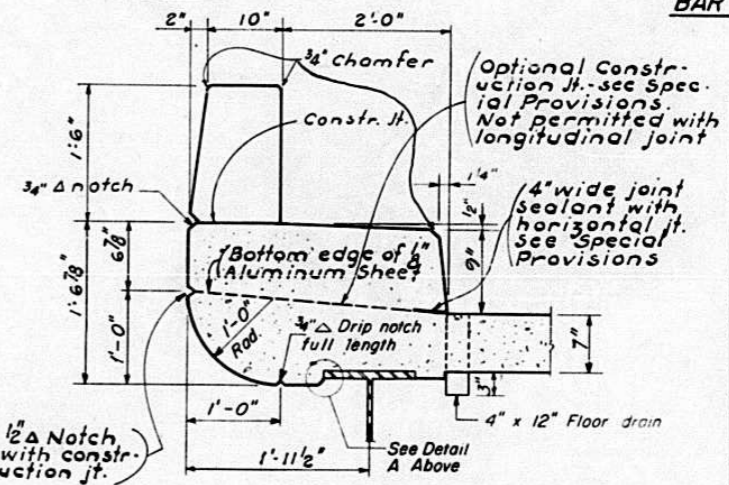 BAR
2" 10" 2'-0"
3/4" Chamfer
Optional Constr-
uction Jt.-see Spec-
ial Provisions.
Not permitted with
longitudinal joint
Constr. Jt.
1'-6"
3/4" Δ notch
1 1/4"
1/2"
4" wide joint
sealant with
horizontal jt.
See Special
Provisions
6 7/8"
1'-6 7/8"
Bottom edge of 1/8"
Aluminum Sheet
9"
1'-0"
1'-0"
Rad.
3/4" Δ Drip notch
full length
7"
3"
1'-0"
4" x 12" Floor drain
1/2" Δ Notch
with constr-
uction jt.
See Detail
A Above
1'-11 1/2"